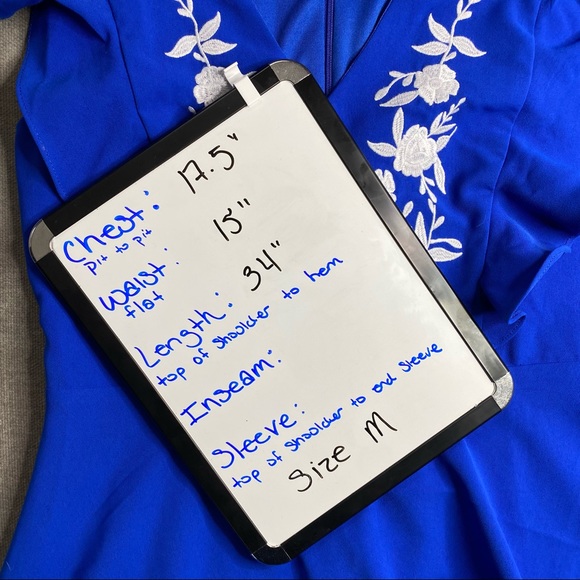 Chest: 17.5"
pit to pit
Waist: 15"
flat
Length: 34"
top of shoulder to hem
Inseam:
Sleeve:
top of shoulder to end sleeve
Size M